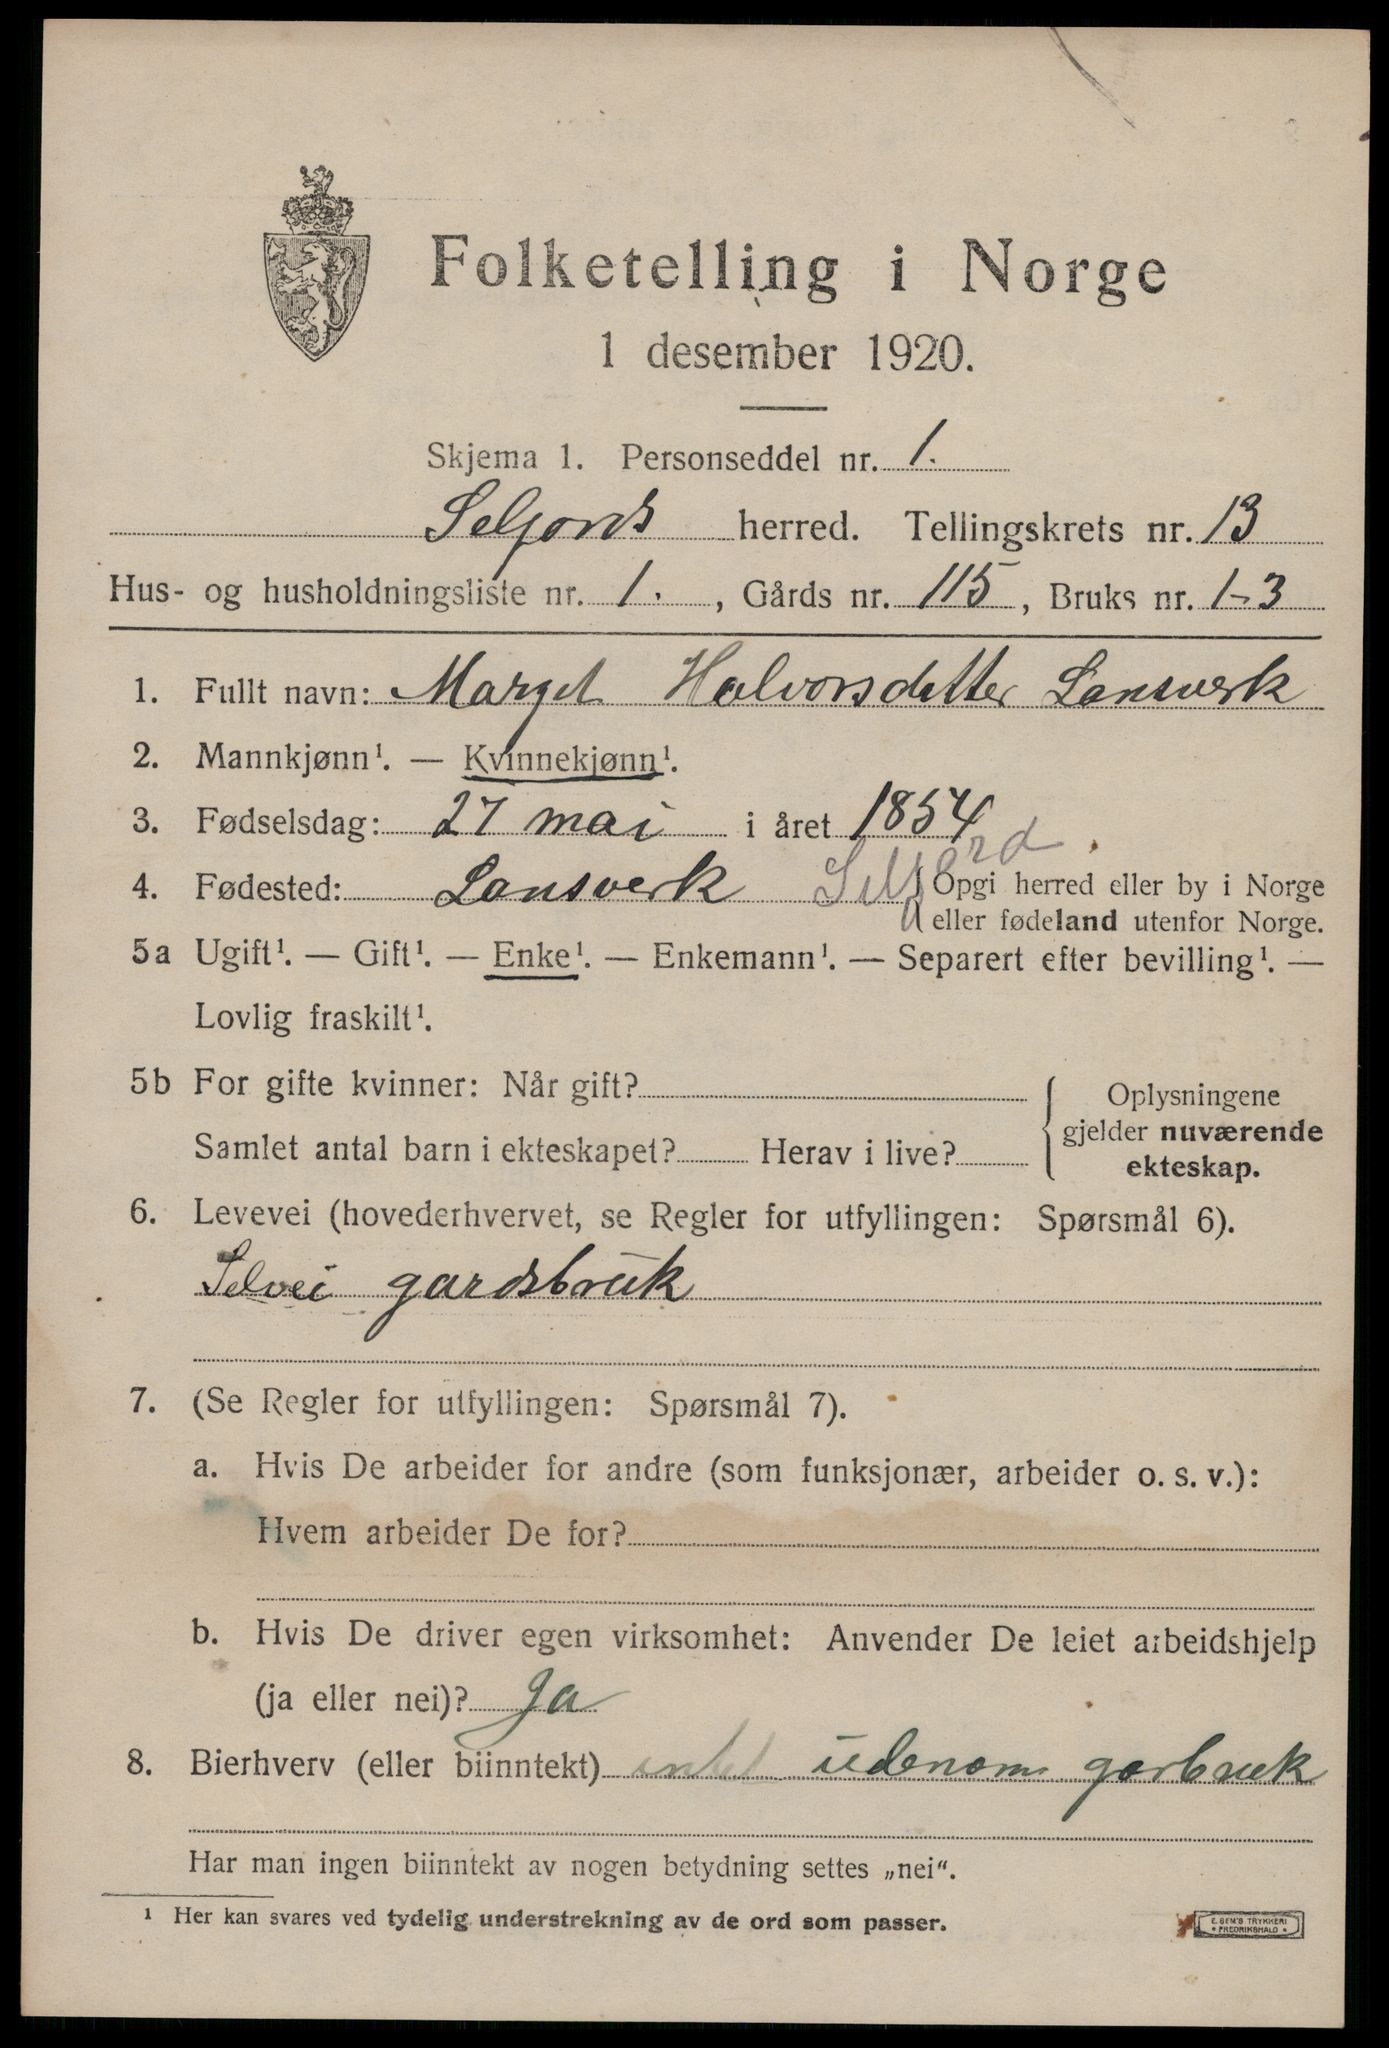 Folketelling i Norge
1 desember 1920.
Skjema 1. Personseddel nr. 1.
Seljord herred. Tellingskrets nr. 13
Hus- og husholdningsliste nr. 1. , Gårds nr. 115, Bruks nr. 1-3
1. Fullt navn: Marget Halvorsdatter Lansverk
2. Mannkjønn¹. — Kvinnekjønn¹.
3. Fødselsdag: 27 mai i året 1854
4. Fødested: Lansverk Seljord { Opgi herred eller by i Norge
eller fødeland utenfor Norge.
5a Ugift¹. — Gift¹. — Enke¹. — Enkemann¹. — Separert efter bevilling¹. —
Lovlig fraskilt¹.
5b For gifte kvinner: Når gift? { Oplysningene
gjelder nuværende
Samlet antal barn i ekteskapet? Herav i live? ekteskap.
6. Levevei (hovederhvervet, se Regler for utfyllingen: Spørsmål 6).
Selvei gardsbruk
7. (Se Regler for utfyllingen: Spørsmål 7).
a. Hvis De arbeider for andre (som funksjonær, arbeider o. s. v.):
Hvem arbeider De for?
b. Hvis De driver egen virksomhet: Anvender De leiet arbeidshjelp
(ja eller nei)? Ja
8. Bierhverv (eller biinntekt) intet udenom garbruk
Har man ingen biinntekt av nogen betydning settes „nei“.
¹ Her kan svares ved tydelig understrekning av de ord som passer.
E. SEM'S TRYKKERI
• FREDRIKSHALD •